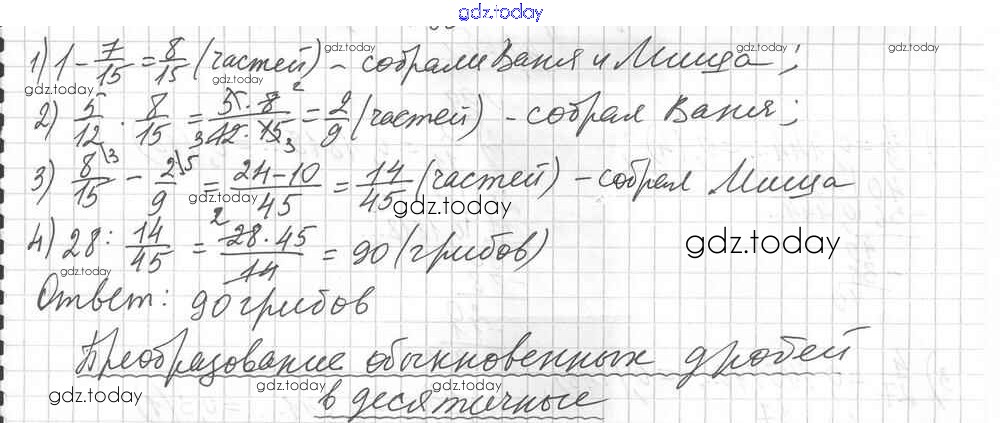 gdz.today
1) 1 - 7/15 = 8/15 (частей) - собрали Ваня и Миша;
2) 5/12 · 8/15 = 5·8/12·15 = 2/9 (частей) - собрал Ваня;
3) 8/15 - 2/9 = 24-10/45 = 14/45 (частей) - собрал Миша
4) 28 : 14/45 = 28·45/14 = 90 (грибов)
Ответ: 90 грибов
Преобразование обыкновенных дробей
в десятичные
gdz.today
gdz.today
gdz.today
gdz.today
gdz.today
gdz.today
gdz.today
gdz.today
gdz.today
gdz.today
gdz.today
gdz.today
gdz.today